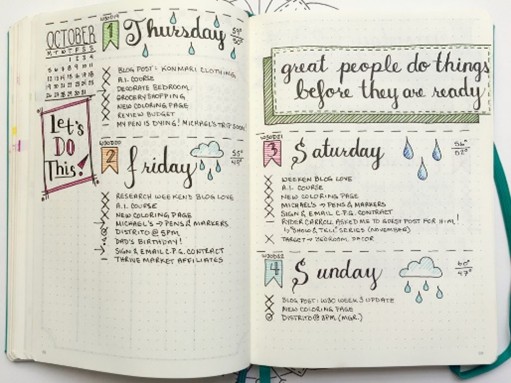 OCTOBER
M T W T F S S
1
Thursday
BLOG POST: KONMARI CLOTHING
A.I. COURSE
DECORATE BEDROOM
GROCERY SHOPPING
NEW COLORING PAGE
REVIEW BUDGET
MY PEN IS DYING! MICHAEL'S TRIP SOON!
Let's
DO
This!
2
friday
RESEARCH WEEKEND BLOG LOVE
A.I. COURSE
NEW COLORING PAGE
MICHAEL'S → PENS & MARKERS
DISTRITO @ 5PM
DAD'S BIRTHDAY!
SIGN & EMAIL C.P.G. CONTRACT
THRIVE MARKET AFFILIATES
great people do things
before they are ready
3
Saturday
WEEKEND BLOG LOVE
A.I. COURSE
NEW COLORING PAGE
MICHAEL'S → PENS & MARKERS
SIGN & EMAIL C.P.G. CONTRACT
RYDER CARROLL ASKED ME TO GUEST POST FOR HIM!
↳ "SHOW & TELL" SERIES (NOVEMBER)
TARGET → BEDROOM DECOR
4
Sunday
60°
47°
BLOG POST: W30 WEEK 3 UPDATE
NEW COLORING PAGE
DISTRITO @ 2PM (MGR.)